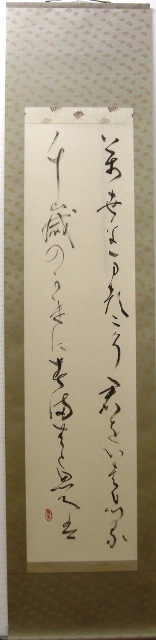 萬世をまつにそ君をいはひつる
千歳のかけに春満むと思へは